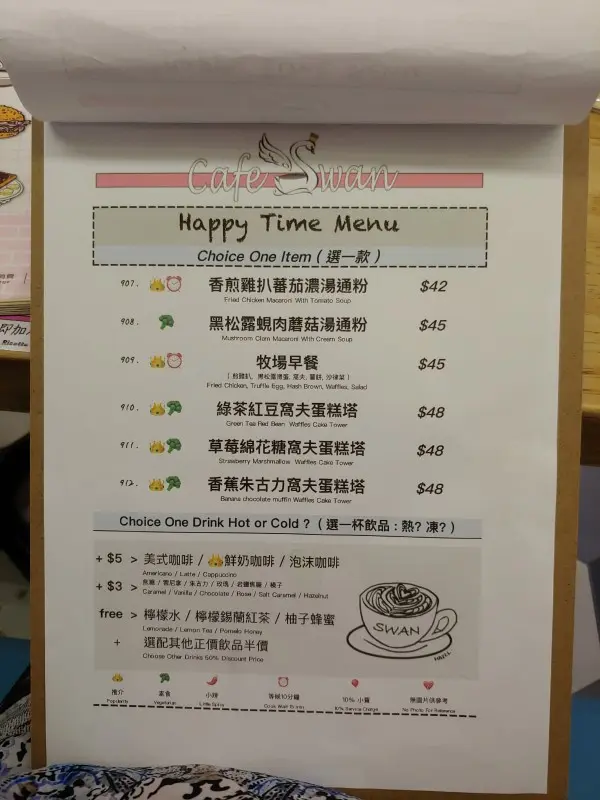 Cafe Swan
Happy Time Menu
Choice One Item ( 選一款 )
907. 香煎雞扒蕃茄濃湯通粉 $42
Fried Chicken Macaroni With Tomato Soup
908. 黑松露蜆肉蘑菇湯通粉 $45
Mushroom Clam Macaroni With Cream Soup
909. 牧場早餐 $45
Fried Chicken, Truffle Egg, Hash Brown, Waffles, Salad
910. 綠茶紅豆窩夫蛋糕塔 $48
Green Tea Red Bean Waffles Cake Tower
911. 草莓綿花糖窩夫蛋糕塔 $48
Strawberry Marshmallow Waffles Cake Tower
912. 香蕉朱古力窩夫蛋糕塔 $48
Banana chocolate muffin Waffles Cake Tower
Choice One Drink Hot or Cold ? ( 選一杯飲品 : 熱? 凍? )
+ $5 > 美式咖啡 / 鮮奶咖啡 / 泡沫咖啡
Americano / Latte / Cappuccino
+ $3 > 焦糖 / 雲尼拿 / 朱古力 / 玫瑰 / 岩鹽焦糖 / 榛子
Caramel / Vanilla / Chocolate / Rose / Salt Caramel / Hazelnut
free > 檸檬水 / 檸檬錫蘭紅茶 / 柚子蜂蜜
Lemonade / Lemon Tea / Pomelo Honey
+ 選配其他正價飲品半價
Choose Other Drinks 50% Discount Price
SWAN
推介 素食 小辣 等候10分鐘 10% 小費 無圖片供參考
Popularity Vegetarian Little Spicy 10% Service Charge No Photo For Reference